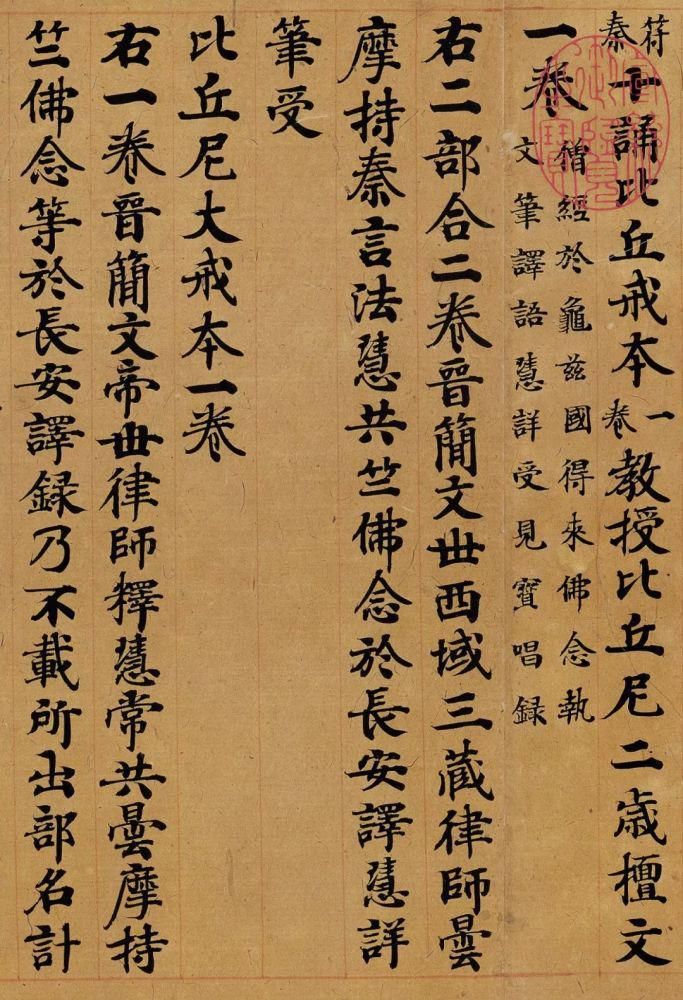 符秦十誦比丘戒本一卷教授比丘尼二歲檀文
一卷僧經於龜茲國得來佛念執
文筆譯語慧詳受見寶唱録
右二部合二卷晉簡文世西域三藏律師曇
摩持秦言法慧共竺佛念於長安譯慧詳
筆受
比丘尼大戒本一卷
右一卷晉簡文帝世律師釋慧常共曇摩持
竺佛念等於長安譯録乃不載所出部名計